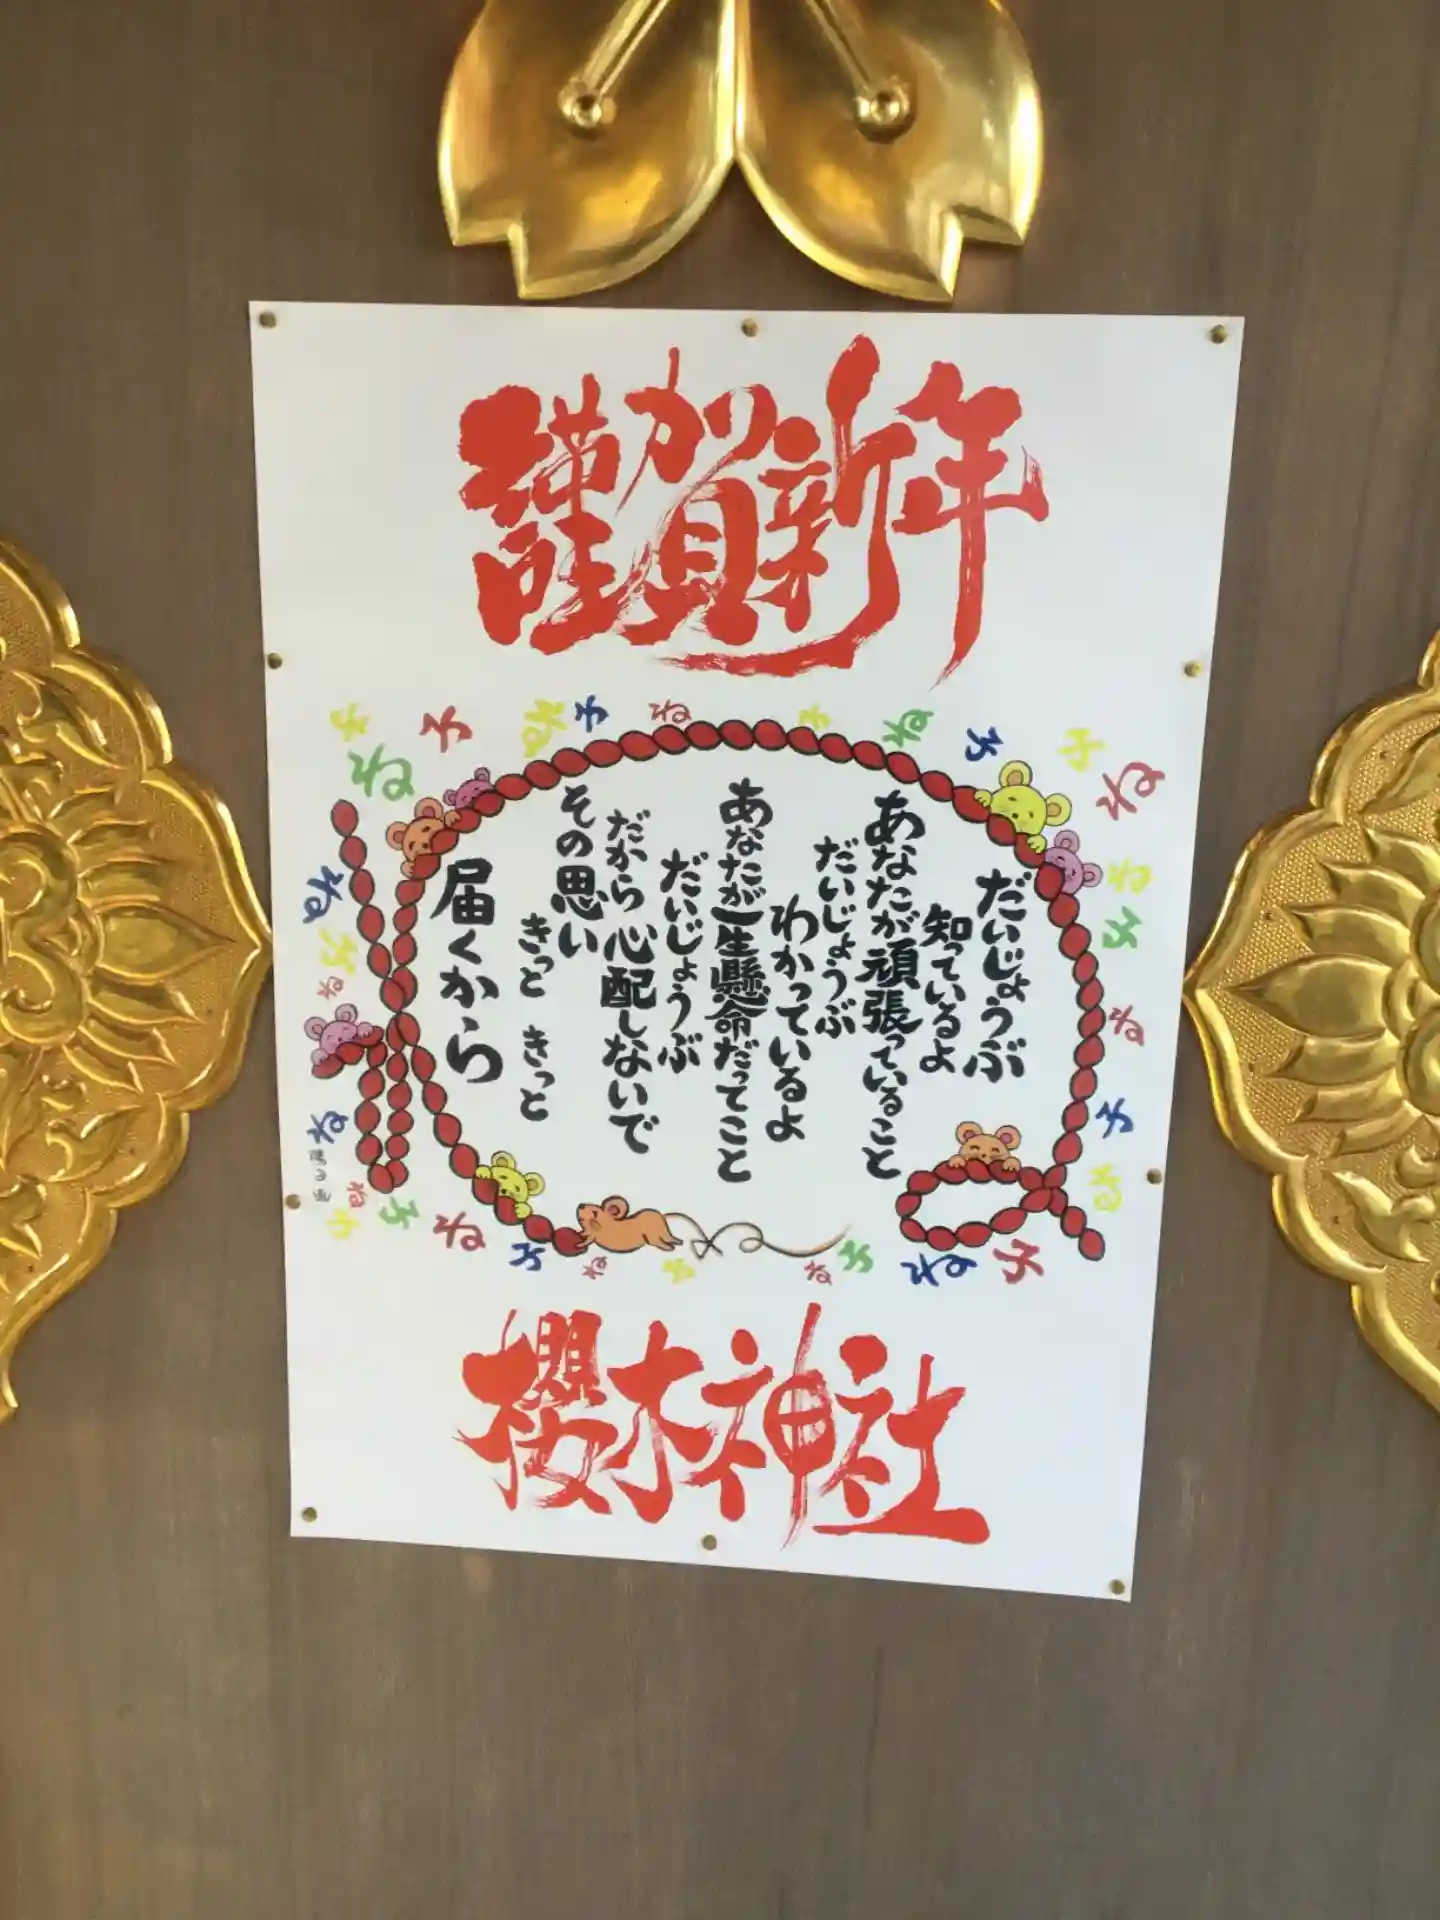 謹賀新年
だいじょうぶ
知っているよ
あなたが頑張っていること
だいじょうぶ
わかっているよ
あなたが一生懸命だってこと
だいじょうぶ
だから心配しないで
その思い
きっと きっと
届くから
子
子
ね
ね
子
ね
子
ね
子
子
ね
ね
子
ね
子
ね
ね
子
ね
ね
子
ね
子
ね
子
ね
子
ね
子
ね
子
ね
子
櫻木神社